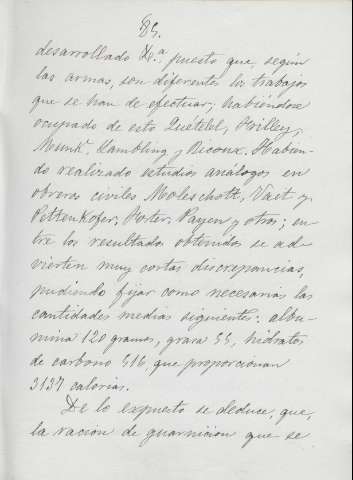 85.
desarrollado &.ª puesto que, según
las armas, son diferentes los trabajos
que se han de efectuar; habiéndose
ocupado de esto Quetelet,
Munk, Kambling y Ricoux. Habien-
do realizado estudios análogos en
obreros civiles Moleschott, Voit y
Pettenkofer, Foster, Payen y otros; en-
tre los resultados obtenidos se ad-
vierten muy cortas discrepancias,
pudiendo fijar como necesarias las
cantidades medias siguientes: albu-
mina 120 gramos, grasa 55, hidratos
de carbono 516, que proporcionan
3137 calorias.
De lo expuesto se deduce, que,
la racion de guarnicion que se